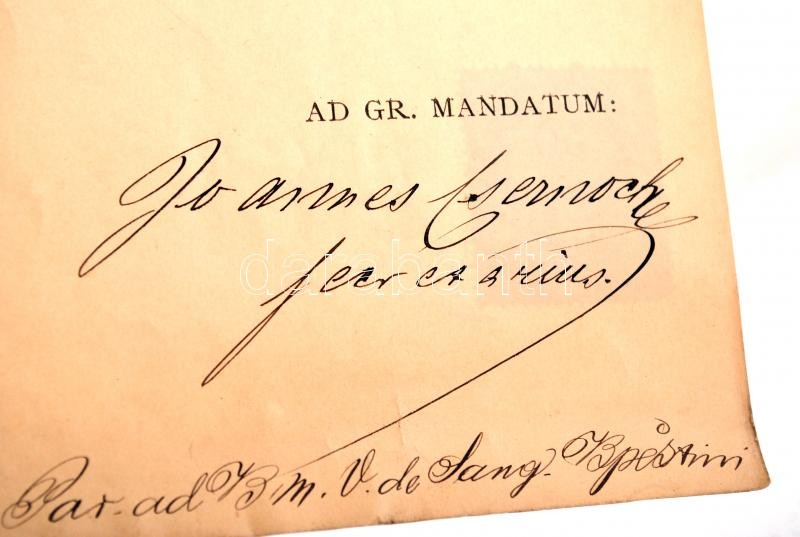 AD GR. MANDATUM:
Joannes Csernoch
secretarius.
darabanth
Par. ad B. m. V. de Sang. Bpestini